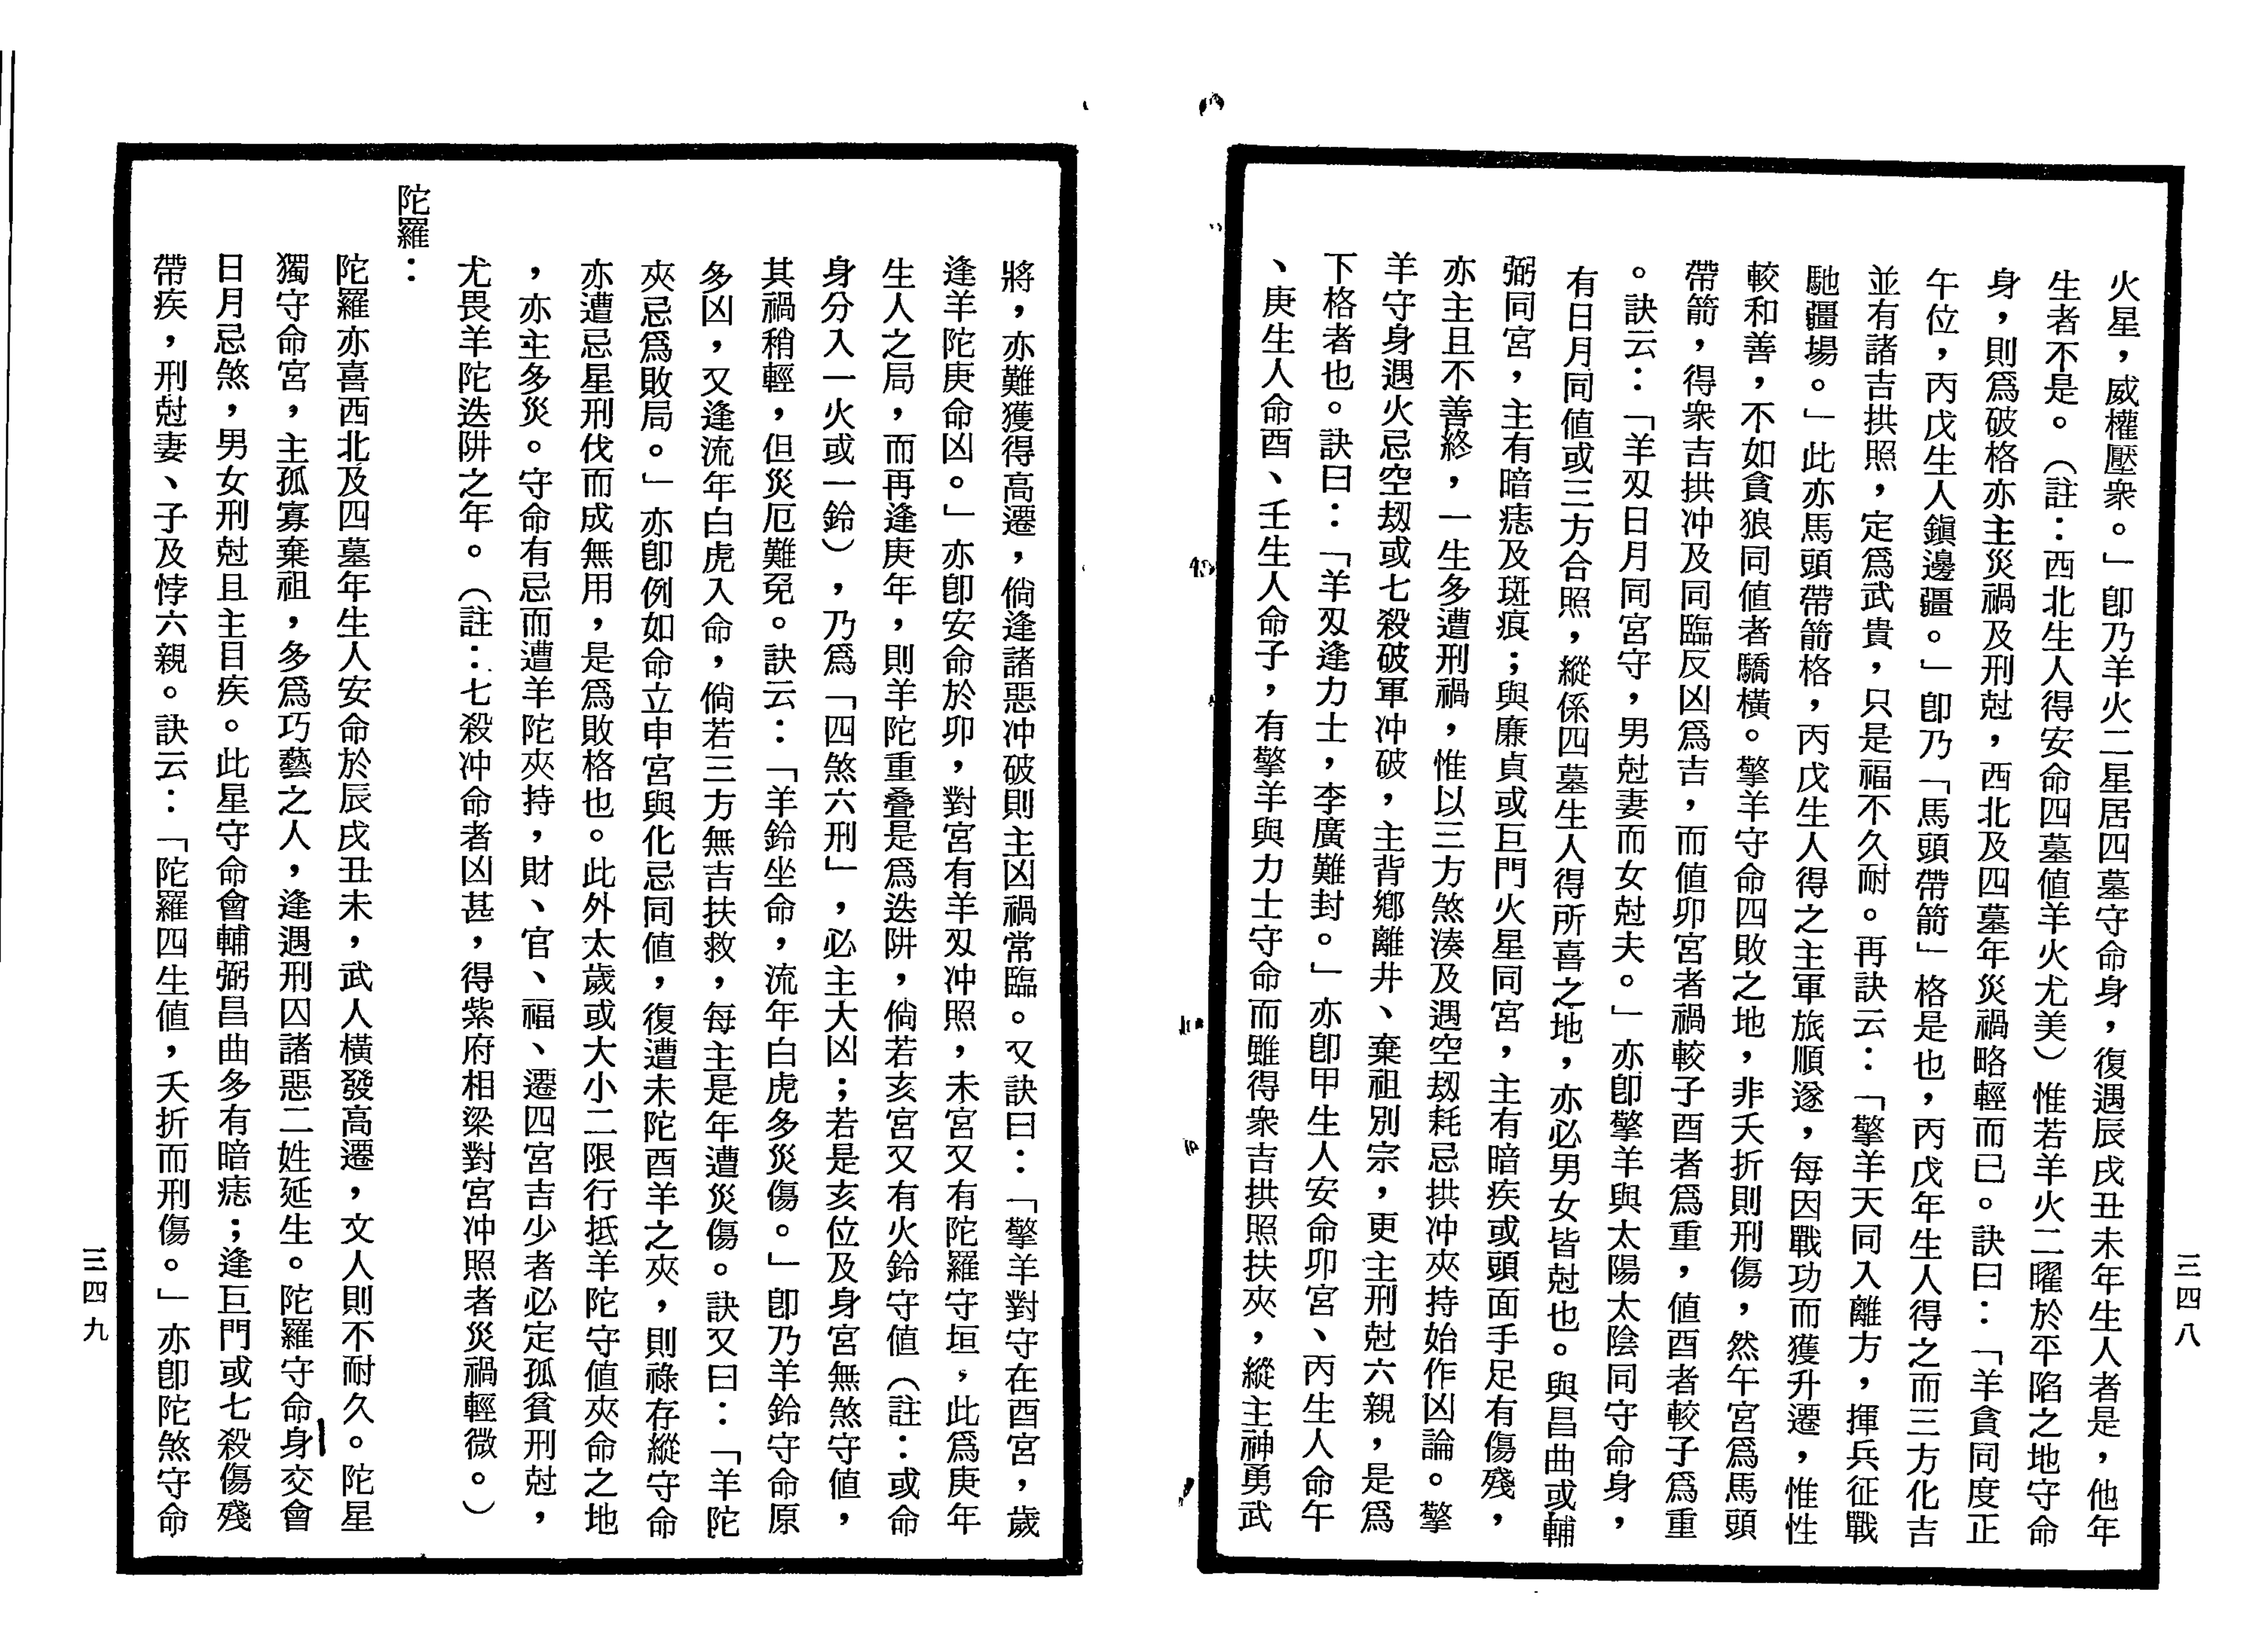 火星，威權壓衆。」卽乃羊火二星居四墓守命身，復遇辰戌丑未年生人者是，他年
生者不是。（註：西北生人得安命四墓值羊火尤美）惟若羊火二曜於平陷之地守命
身，則爲破格亦主災禍及刑尅，西北及四墓年災禍略輕而已。訣曰：「羊貪同度正
午位，丙戊生人鎭邊疆。」卽乃「馬頭帶箭」格是也，丙戊年生人得之而三方化吉
並有諸吉拱照，定爲武貴，只是福不久耐。再訣云：「擎羊天同入離方，揮兵征戰
馳疆場。」此亦馬頭帶箭格，丙戊生人得之主軍旅順遂，每因戰功而獲升遷，惟性
較和善，不如貪狼同值者驕橫。擎羊守命四敗之地，非夭折則刑傷，然午宮爲馬頭
帶箭，得衆吉拱冲及同臨反凶爲吉，而值卯宮者禍較子酉者爲重，值酉者較子爲重
。訣云：「羊刄日月同宮守，男尅妻而女尅夫。」亦卽擎羊與太陽太陰同守命身，
有日月同值或三方合照，縱係四墓生人得所喜之地，亦必男女皆尅也。與昌曲或輔
弼同宮，主有暗痣及斑痕；與廉貞或巨門火星同宮，主有暗疾或頭面手足有傷殘，
亦主且不善終，一生多遭刑禍，惟以三方煞湊及遇空刼耗忌拱冲夾持始作凶論。擎
羊守身遇火忌空刼或七殺破軍冲破，主背鄉離井、棄祖別宗，更主刑尅六親，是爲
下格者也。訣曰：「羊刄逢力士，李廣難封。」亦卽甲生人安命卯宮、丙生人命午
、庚生人命酉、壬生人命子，有擎羊與力士守命而雖得衆吉拱照扶夾，縱主神勇武
三四八
將，亦難獲得高遷，倘逢諸惡冲破則主凶禍常臨。又訣曰：「擎羊對守在酉宮，歲
逢羊陀庚命凶。」亦卽安命於卯，對宮有羊刄冲照，未宮又有陀羅守垣，此爲庚年
生人之局，而再逢庚年，則羊陀重叠是爲迭阱，倘若亥宮又有火鈴守值（註：或命
身分入一火或一鈴），乃爲「四煞六刑」，必主大凶；若是亥位及身宮無煞守值，
其禍稍輕，但災厄難免。訣云：「羊鈴坐命，流年白虎多災傷。」卽乃羊鈴守命原
多凶，又逢流年白虎入命，倘若三方無吉扶救，每主是年遭災傷。訣又曰：「羊陀
夾忌爲敗局。」亦卽例如命立申宮與化忌同值，復遭未陀酉羊之夾，則祿存縱守命
亦遭忌星刑伐而成無用，是爲敗格也。此外太歲或大小二限行抵羊陀守值夾命之地
，亦主多災。守命有忌而遭羊陀夾持，財、官、福、遷四宮吉少者必定孤貧刑尅，
尤畏羊陀迭阱之年。（註：七殺冲命者凶甚，得紫府相梁對宮冲照者災禍輕微。）
陀羅：
陀羅亦喜西北及四墓年生人安命於辰戌丑未，武人橫發高遷，文人則不耐久。陀星
獨守命宮，主孤寡棄祖，多爲巧藝之人，逢遇刑囚諸惡二姓延生。陀羅守命身交會
日月忌煞，男女刑尅且主目疾。此星守命會輔弼昌曲多有暗痣；逢巨門或七殺傷殘
帶疾，刑尅妻、子及悖六親。訣云：「陀羅四生值，夭折而刑傷。」亦卽陀煞守命
三四九